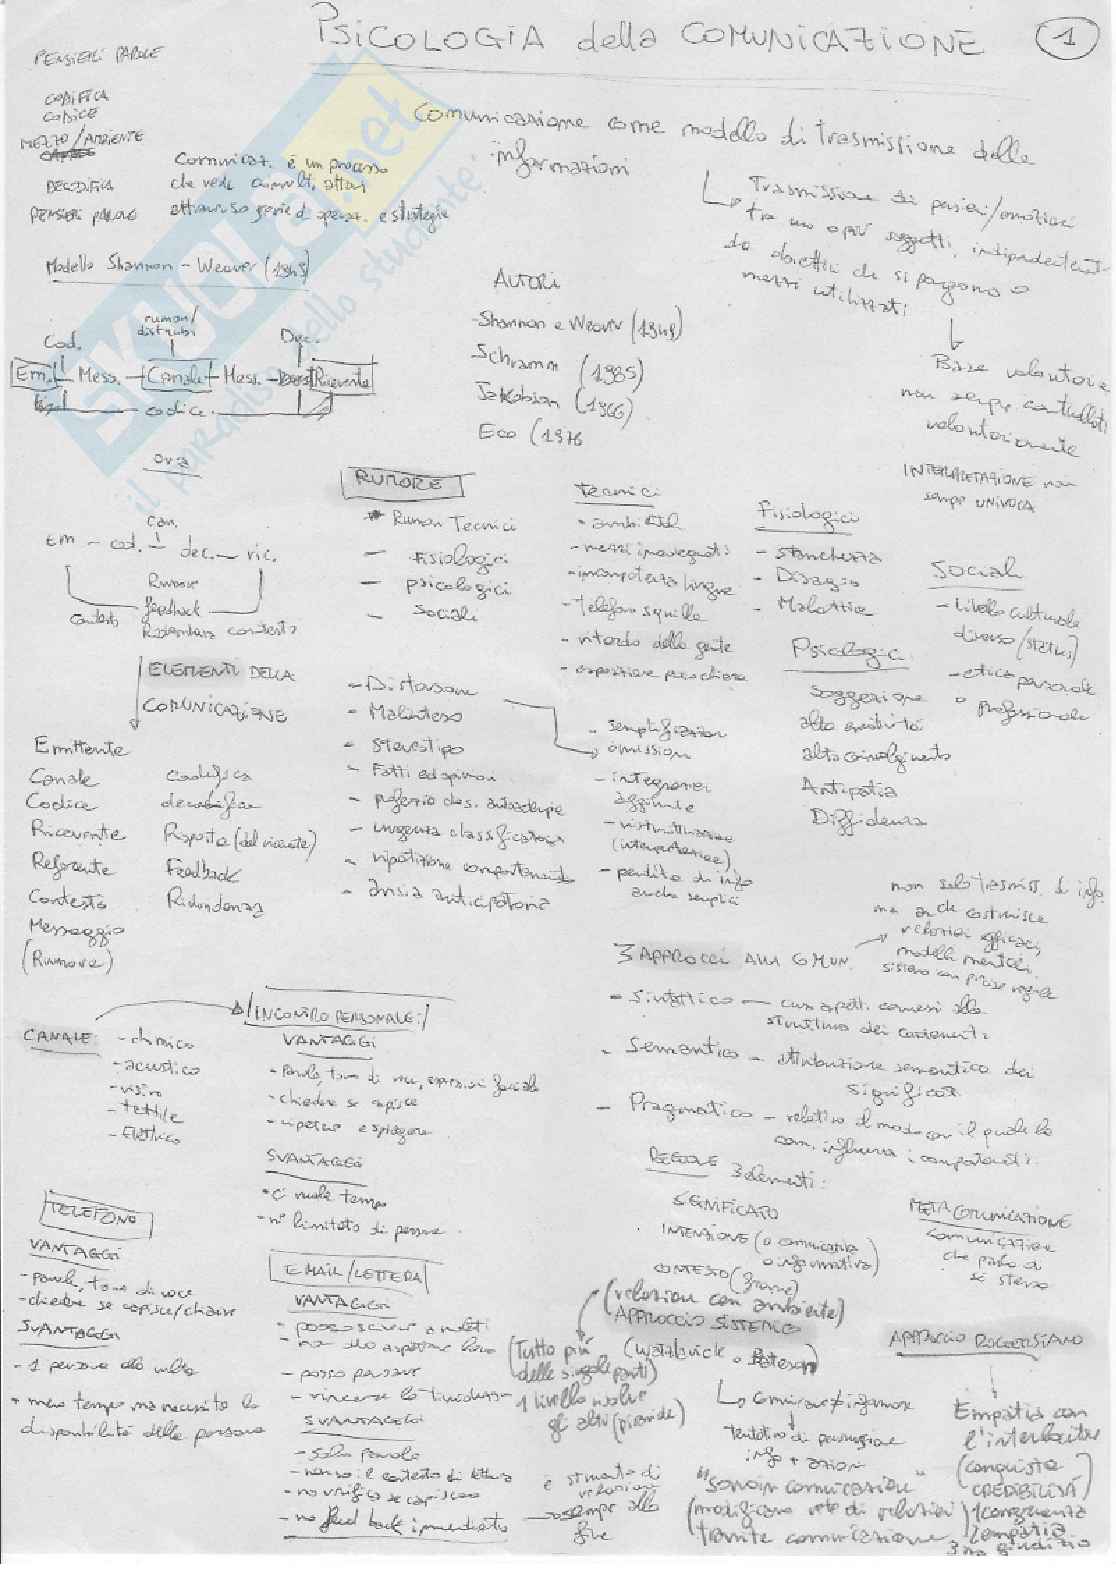 PSICOLOGIA della COMUNICAZIONE 1
PENSIERI PAROLE
CODIFICA
CODICE
MEZZO/AMBIENTE
DECODIFICA
PENSIERI PAROLE
Comunicaz. è un processo
che vede
attraverso serie di operaz. e strategie
Comunicazione come modello di trasmissione delle
informazioni
Trasmissione di pensieri/emozioni
tra uno o più soggetti, indipendentement
da obiettivi che si pongono o
mezzi utilizzati
Base volontaria
non sempre controllati
volontariamente
INTERPRETAZIONE non
sempre UNIVOCA
Modello Shannon - Weaver (1949)
rumori/
disturbi
Cod. Dec.
Em. Mess. - Canale - Mess. - Ricevente
codice
AUTORI
-Shannon e Weaver (1949)
Schramm (1985)
Jakobson (1966)
Eco (1976
ora
can.
Em - cod. - dec. - ric.
Rumore
feedback
Contesto Ridondanza contesto
RUMORE
Rumori Tecnici
- fisiologici
- psicologici
- sociali
Tecnici
- mezzi inadeguati
- incompetenza lingua
- Telefono squilla
- ritardo della gente
- esposizione poco chiara
Fisiologici
- Stanchezza
- Disagio
- Malattia
Psicologici
Soggezione
alta emotività
alto coinvolgimento
Antipatia
Diffidenza
Sociali
- Livello culturale
diverso (status)
- etica personale
o professionale
ELEMENTI DELLA
COMUNICAZIONE
Emittente
Canale codifica
Codice decodifica
Ricevente Risposta (del ricevente)
Referente Feedback
Contesto Ridondanza
Messaggio
(Rumore)
- Distorsione
- Malinteso
- Stereotipo
- Fatti ed opinioni
- urgenza classificatoria
- ripetizione comportamento
- ansia anticipatoria
- semplificazioni
omissioni
- integrazioni
aggiunte
- ristrutturazione
(interpretazione)
- perdita di info
anche semplici
3 APPROCCI ALLA COMUN.
non solo trasmiss. di info
ma anche costruisce
relazioni efficaci,
modelli mentali,
sistema con precise regole
- Sintattico - cura aspetti connessi alla
struttura dei contenuti
- Semantico - attribuzione semantica dei
significati
- Pragmatico - relativo al modo con il quale la
com. influenza i comportamenti
REGOLE 3 elementi:
SIGNIFICATO
INTENZIONE (o comunicativa
o informativa)
CONTESTO (frame)
METACOMUNICAZIONE
comunicazione
che parla di
sé stessa
CANALE: - chimico
- acustico
- visivo
- tattile
- Elettrico
INCONTRO PERSONALE:
VANTAGGI
- Parole, tono di voce, espressioni facciale
- chiedere se capisce
- ripetere e spiegare
SVANTAGGI
- Ci vuole tempo
- n° limitato di persone.
TELEFONO
VANTAGGI
- parole, tono di voce
- chiedere se capisce/chiarire
SVANTAGGI
- 1 persona alla volta
+ meno tempo ma necessito la
disponibilità della persona
EMAIL/LETTERA
VANTAGGI
- posso scrivere a molti
- non devo aspettare loro
- posso pensare
- vincere la timidezza
SVANTAGGI
- solo parole
- no verifica se capiscono
- no feed back immediato
(relazioni con ambiente)
APPROCCIO SISTEMICO
(Watzlawick o Bateson)
(Tutto più
delle singole parti)
1 livello
gli altri (piramide)
è strumento di
relazione
sempre alla
fine
comunicare≠informare
tentativo di persuasione
info + azioni
(modificano rete di relazioni)
tramite comunicazione
APPROCCIO ROGERSIANO
Empatia con
l'interlocutore
(conquista
CREDIBILITÀ)
1 congruenza
2 empatia
3 no giudizio
SKUOLA.net
il paradiso dello studente